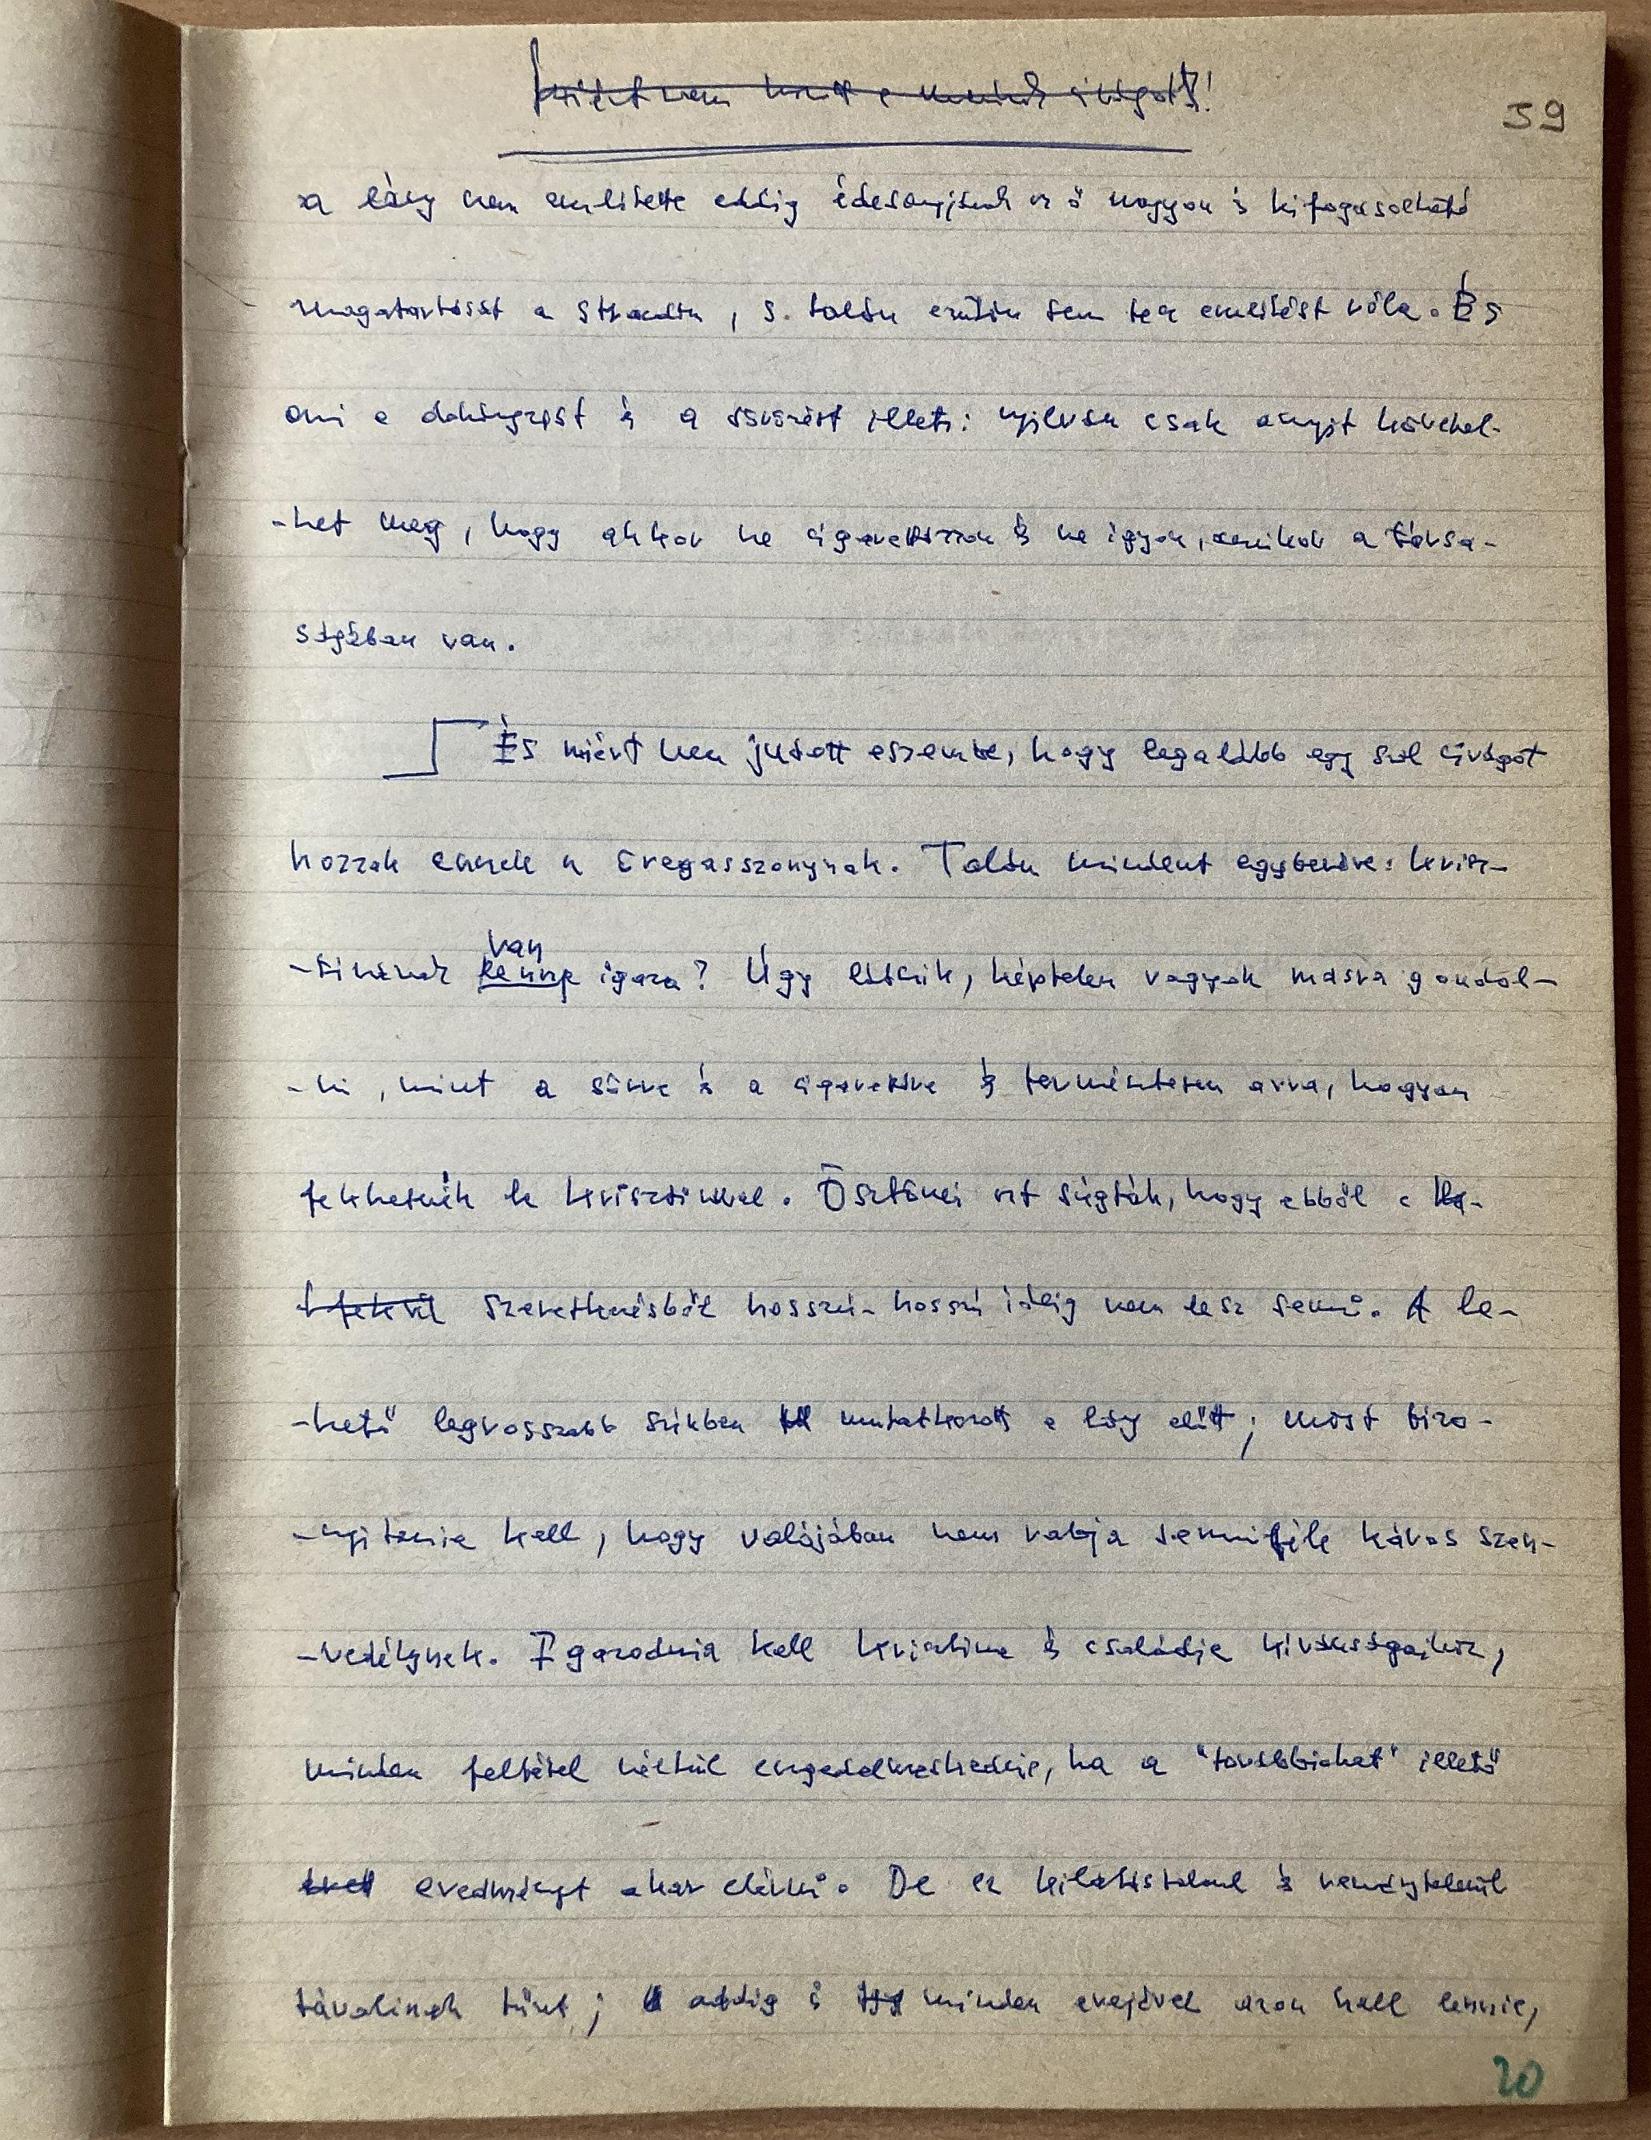 miért nem hozott a mamának virágot?!
59
a lány nem emlitette eddig édesanyjának az ő nagyon is kifogásolható
magatartását a strandon, s talán ezután sem tesz emlitést róla. És
ami a dohányzást és a ivászást illeti: nyilván csak annyit követel-
-het meg, hogy akkor ne cigarettázzon és ne igyon, amikor a társa-
ságában van.
És miért nem jutott eszembe, hogy legalább egy szál virágot
hozzak ennek a öregasszonynak. Talán mindent egybevéve: Krisz-
van
-tinának lenne igaza? Úgy látszik, képtelen vagyok másra gondol-
-ni, mint a sörre és a cigarettára és természetesen arra, hogyan
fekhetnék le Krisztinával. Ösztönei azt súgták, hogy ebből a le-
lefekvé szeretkezésből hosszú-hosszú ideig nem lesz semmi. A le-
-hető legrosszabb szinben mutatkozott a lány előtt; most bizo-
-nyitania kell, hogy valójában nem rabja semmiféle káros szen-
-vedélynek. Igazodnia kell Krisztina és családja kivánságaihoz,
minden feltétel nélkül engedelmeskednie, ha a "továbbiakat" illető
eredményt akar elérni. De ez kilátástalanul és reménytelenül
távolinak tünt; addig is minden erejével azon kell lennie,
20